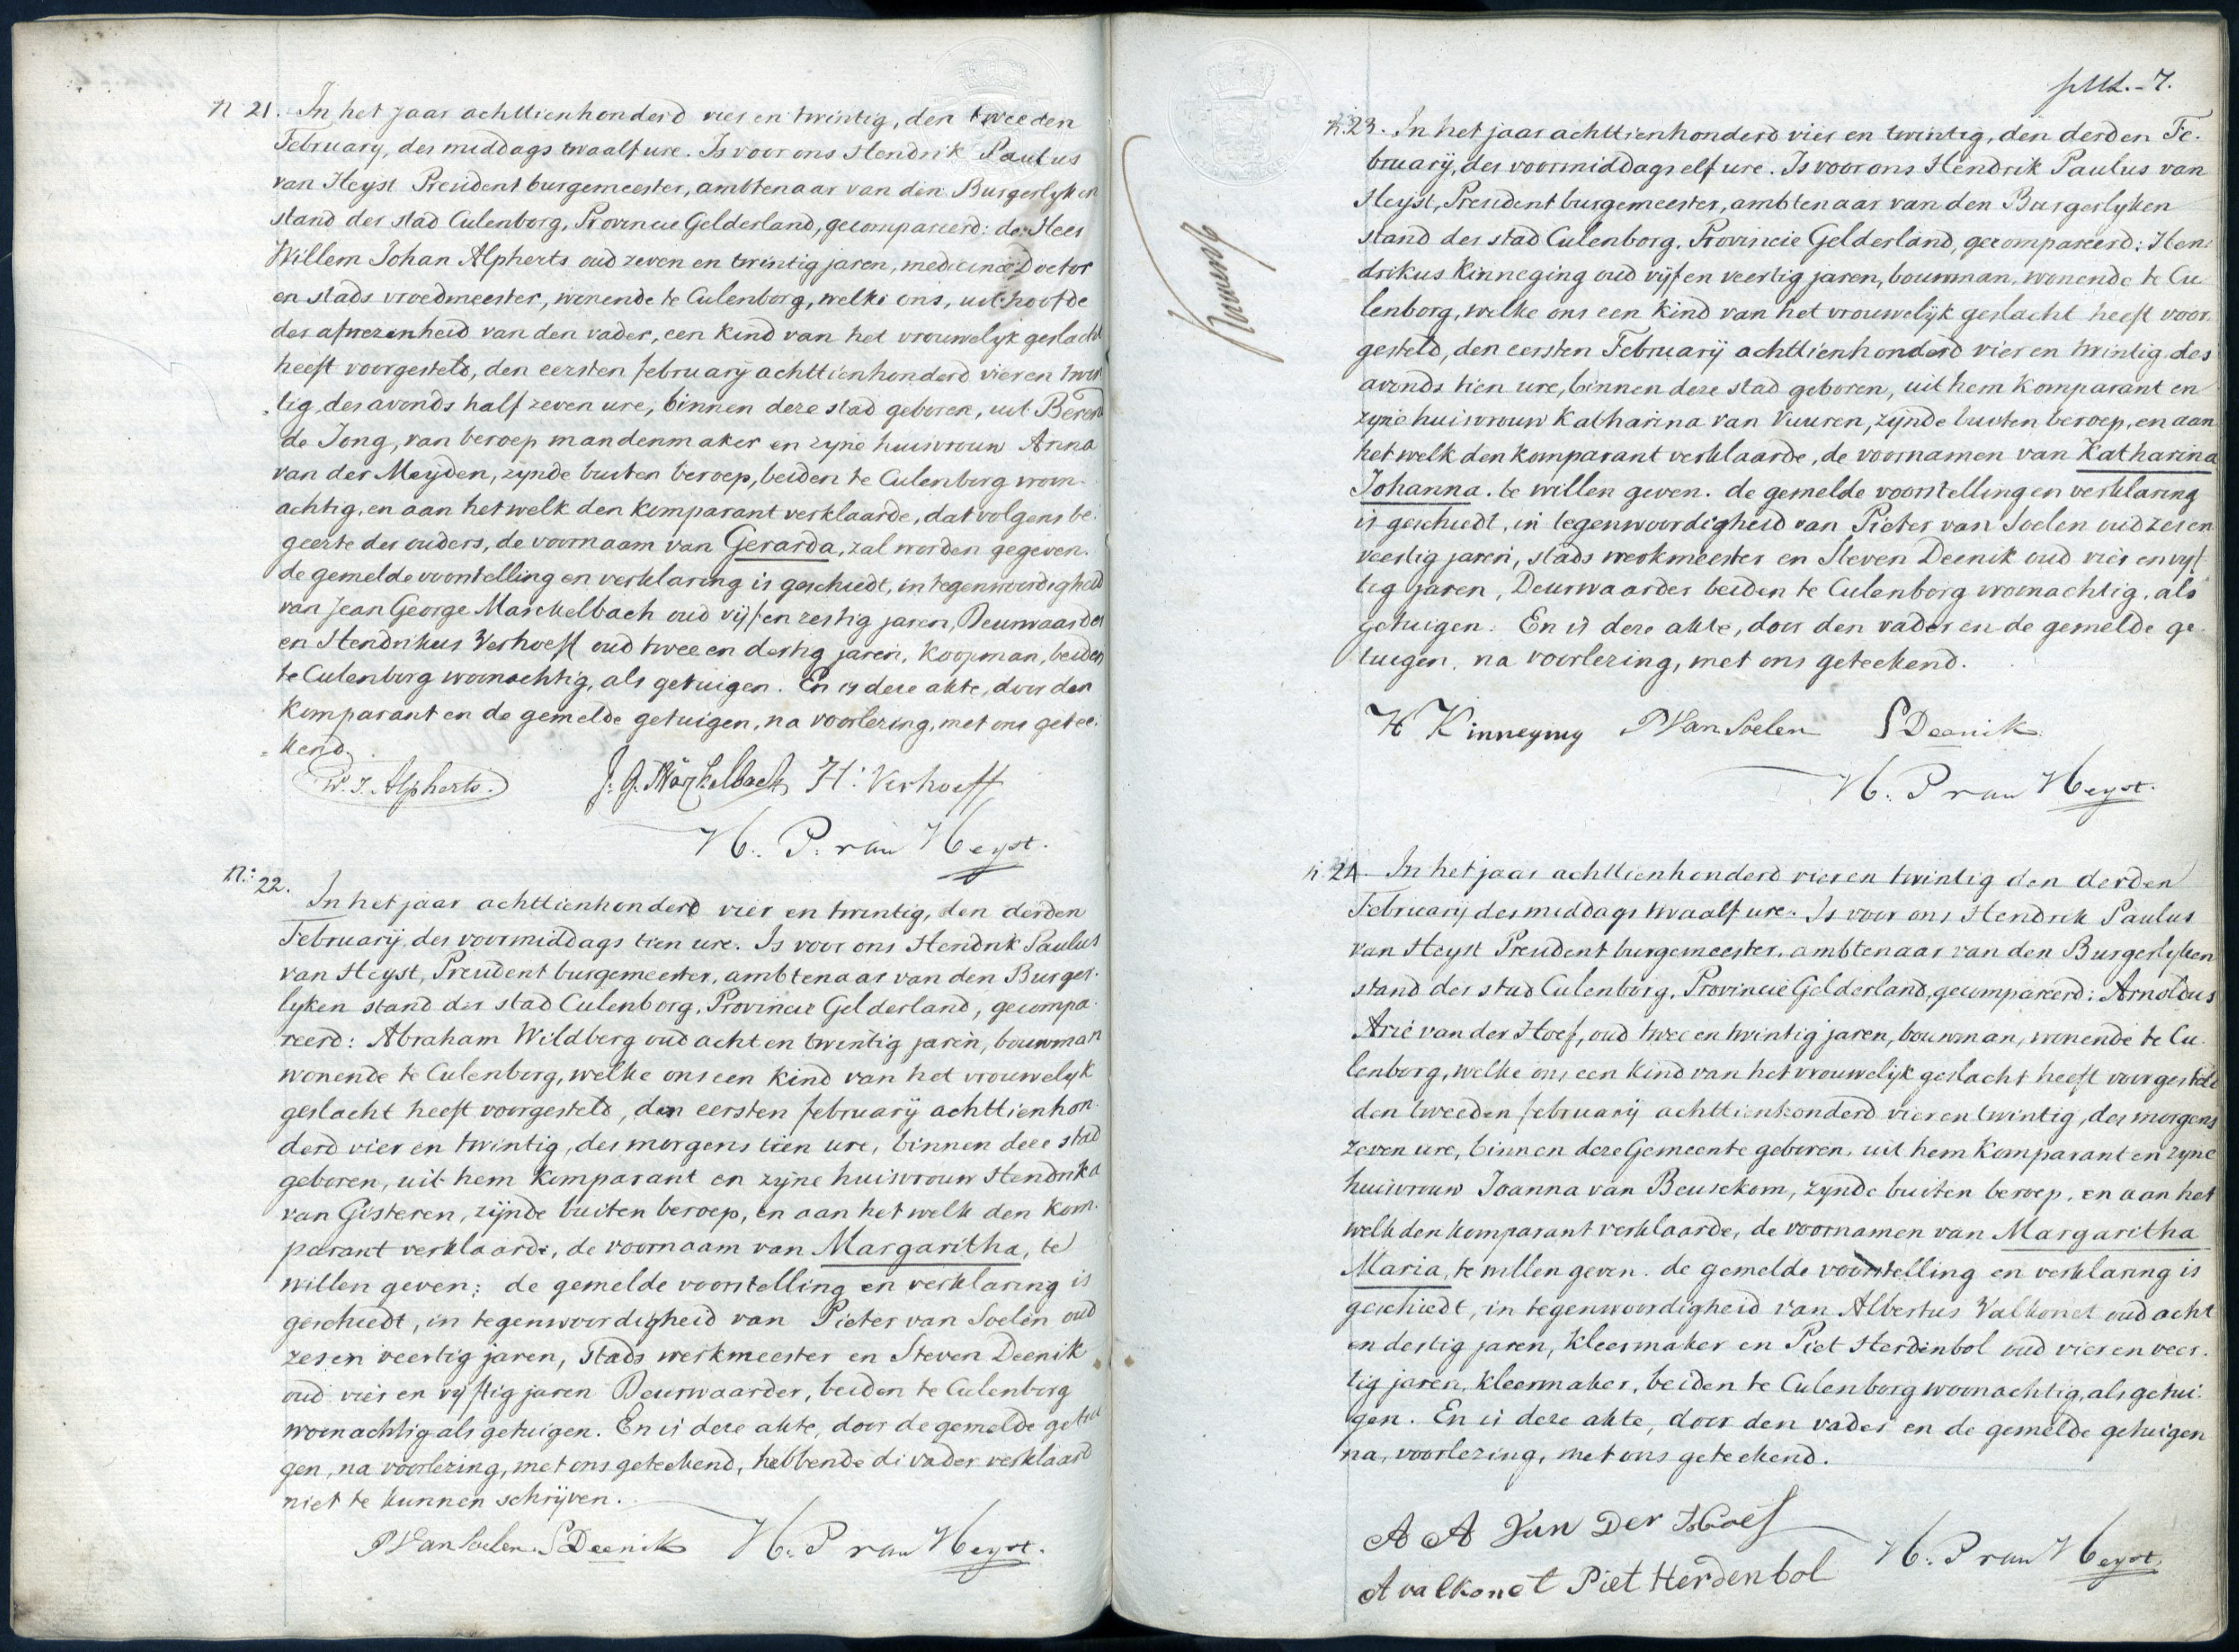 N 21. In het jaar achttienhonderd vier en twintig, den tweeden
February, des middags twaalf ure. Is voor ons Hendrik Paulus
van Heyst President burgemeester, ambtenaar van den Burgerlyken
stand der stad Culenborg, Provincie Gelderland, gecompareerd: de Heer
Willem Johan Alpherts oud zeven en twintig jaren, medicinae Doctor
en stads vroedmeester, wonende te Culenborg, welke ons, uit hoofde
der afwezenheid van den vader, een kind van het vrouwelyk geslacht
heeft voorgesteld, den eersten february achttienhonderd vier en twin
tig, des avonds half zeven ure, binnen deze stad geboren, uit Berend
de Jong, van beroep mandenmaker en zyne huisvrouw Anna
van der Meyden, zynde buiten beroep, beiden te Culenborg woon-
achtig, en aan het welk den komparant verklaarde, dat volgens be-
geerte der ouders, de voornaam van Gerarda, zal worden gegeven.
de gemelde voorstelling en verklaring is geschiedt, in tegenwoordigheid
van Jean George Marckelbach oud vyf en zestig jaren, Deurwaarder
en Hendrikus Verhoeff oud twee en dertig jaren, Koopman, beiden
te Culenborg woonachtig, als getuigen. En is deze akte, door den
Komparant en de gemelde getuigen, na voorlezing, met ons getee-
kend.
W. J. Alpherts. J. G. Märckelbach H. Verhoeff
H. P. van Heyst.
N. 22. In het jaar achttienhonderd vier en twintig, den derden
February, des voormiddags tien ure. Is voor ons Hendrik Paulus
van Heyst, President burgemeester, ambtenaar van den Burger-
lyken stand der stad Culenborg, Provincie Gelderland, gecompa-
reerd: Abraham Wildberg oud acht en twintig jaren, bouwman
wonende te Culenborg, welke ons een kind van het vrouwelyk
geslacht heeft voorgesteld, den eersten february achttienhon-
derd vier en twintig, des morgens tien ure, binnen deze stad
geboren, uit hem komparant en zyne huisvrouw Hendrika
van Gisteren, zijnde buiten beroep, en aan het welk den kom-
parant verklaarde, de voornaam van Margaritha, te
willen geven; de gemelde voorstelling en verklaring is
geschiedt, in tegenwoordigheid van Pieter van Soelen oud
zes en veertig jaren, Stads werkmeester en Steven Deenik
oud vier en vyftig jaren Deurwaarder, beiden te Culenborg
woonachtig als getuigen. En is deze akte, door de gemelde getui
gen, na voorlezing, met ons geteekend, hebbende de vader verklaard
niet te kunnen schrijven.
P Van Soelen S Deenik H. P van Heyst.
7.
N. 23. In het jaar achttienhonderd vier en twintig, den derden Fe-
bruarij, des voormiddags elf ure. Is voor ons Hendrik Paulus van
Heyst, President burgemeester, ambtenaar van den Burgerlyken
stand der stad Culenborg, Provincie Gelderland, gecompareerd: Hen-
drikus Kinneging oud vyf en veertig jaren, bouwman, wonende te Cu
lenborg, welke ons een kind van het vrouwelyk geslacht heeft voor-
gesteld, den eersten Februarij achttienhonderd vier en twintig des
avonds tien ure, binnen deze stad geboren, uit hem komparant en
zyne huisvrouw Katharina van Vuuren, zijnde buiten beroep, en aan
het welk den komparant verklaarde, de voornamen van Katharina
Johanna. te willen geven. de gemelde voorstelling en verklaring
is geschiedt, in tegenwoordigheid van Pieter van Soelen oud zes en
veertig jaren, stads werkmeester en Steven Deenik oud vier en vyf
tig jaren, Deurwaarder beiden te Culenborg woonachtig, als
getuigen. En is deze akte, door den vader en de gemelde ge-
tuigen, na voorlezing, met ons geteekend.
H Kinneging P Van Soelen S Deenik
H. P van Heyst.
N. 24. In het jaar achttienhonderd vier en twintig den derden
February des middags twaalf ure. Is voor ons Hendrik Paulus
van Heyst President burgemeester, ambtenaar van den Burgerlyken
stand der stad Culenborg, Provincie Gelderland, gecompareerd: Arnoldus
Arie van der Hoef, oud twee en twintig jaren, bouwman, wonende te Cu-
lenborg, welke ons een kind van het vrouwelijk geslacht heeft voorgesteld
den tweeden february achttienhonderd vier en twintig, des morgens
zeven ure, binnen deze Gemeente geboren, uit hem komparant en zyne
huisvrouw Joanna van Beusekom, zynde buiten beroep, en aan het
welk den komparant verklaarde, de voornamen van Margaritha
Maria, te willen geven. de gemelde voorstelling en verklaring is
geschiedt, in tegenwoordigheid van Albertus Valkonet oud acht
en dertig jaren, Kleermaker en Piet Herdenbol oud vier en veer-
tig jaren, kleermaker, beiden te Culenborg woonachtig, als getui-
gen. En is deze akte, door den vader en de gemelde getuigen
na, voorlezing, met ons geteekend.
A A Van Der Hoef
A valkonet Piet Herdenbol H. P van Heyst.